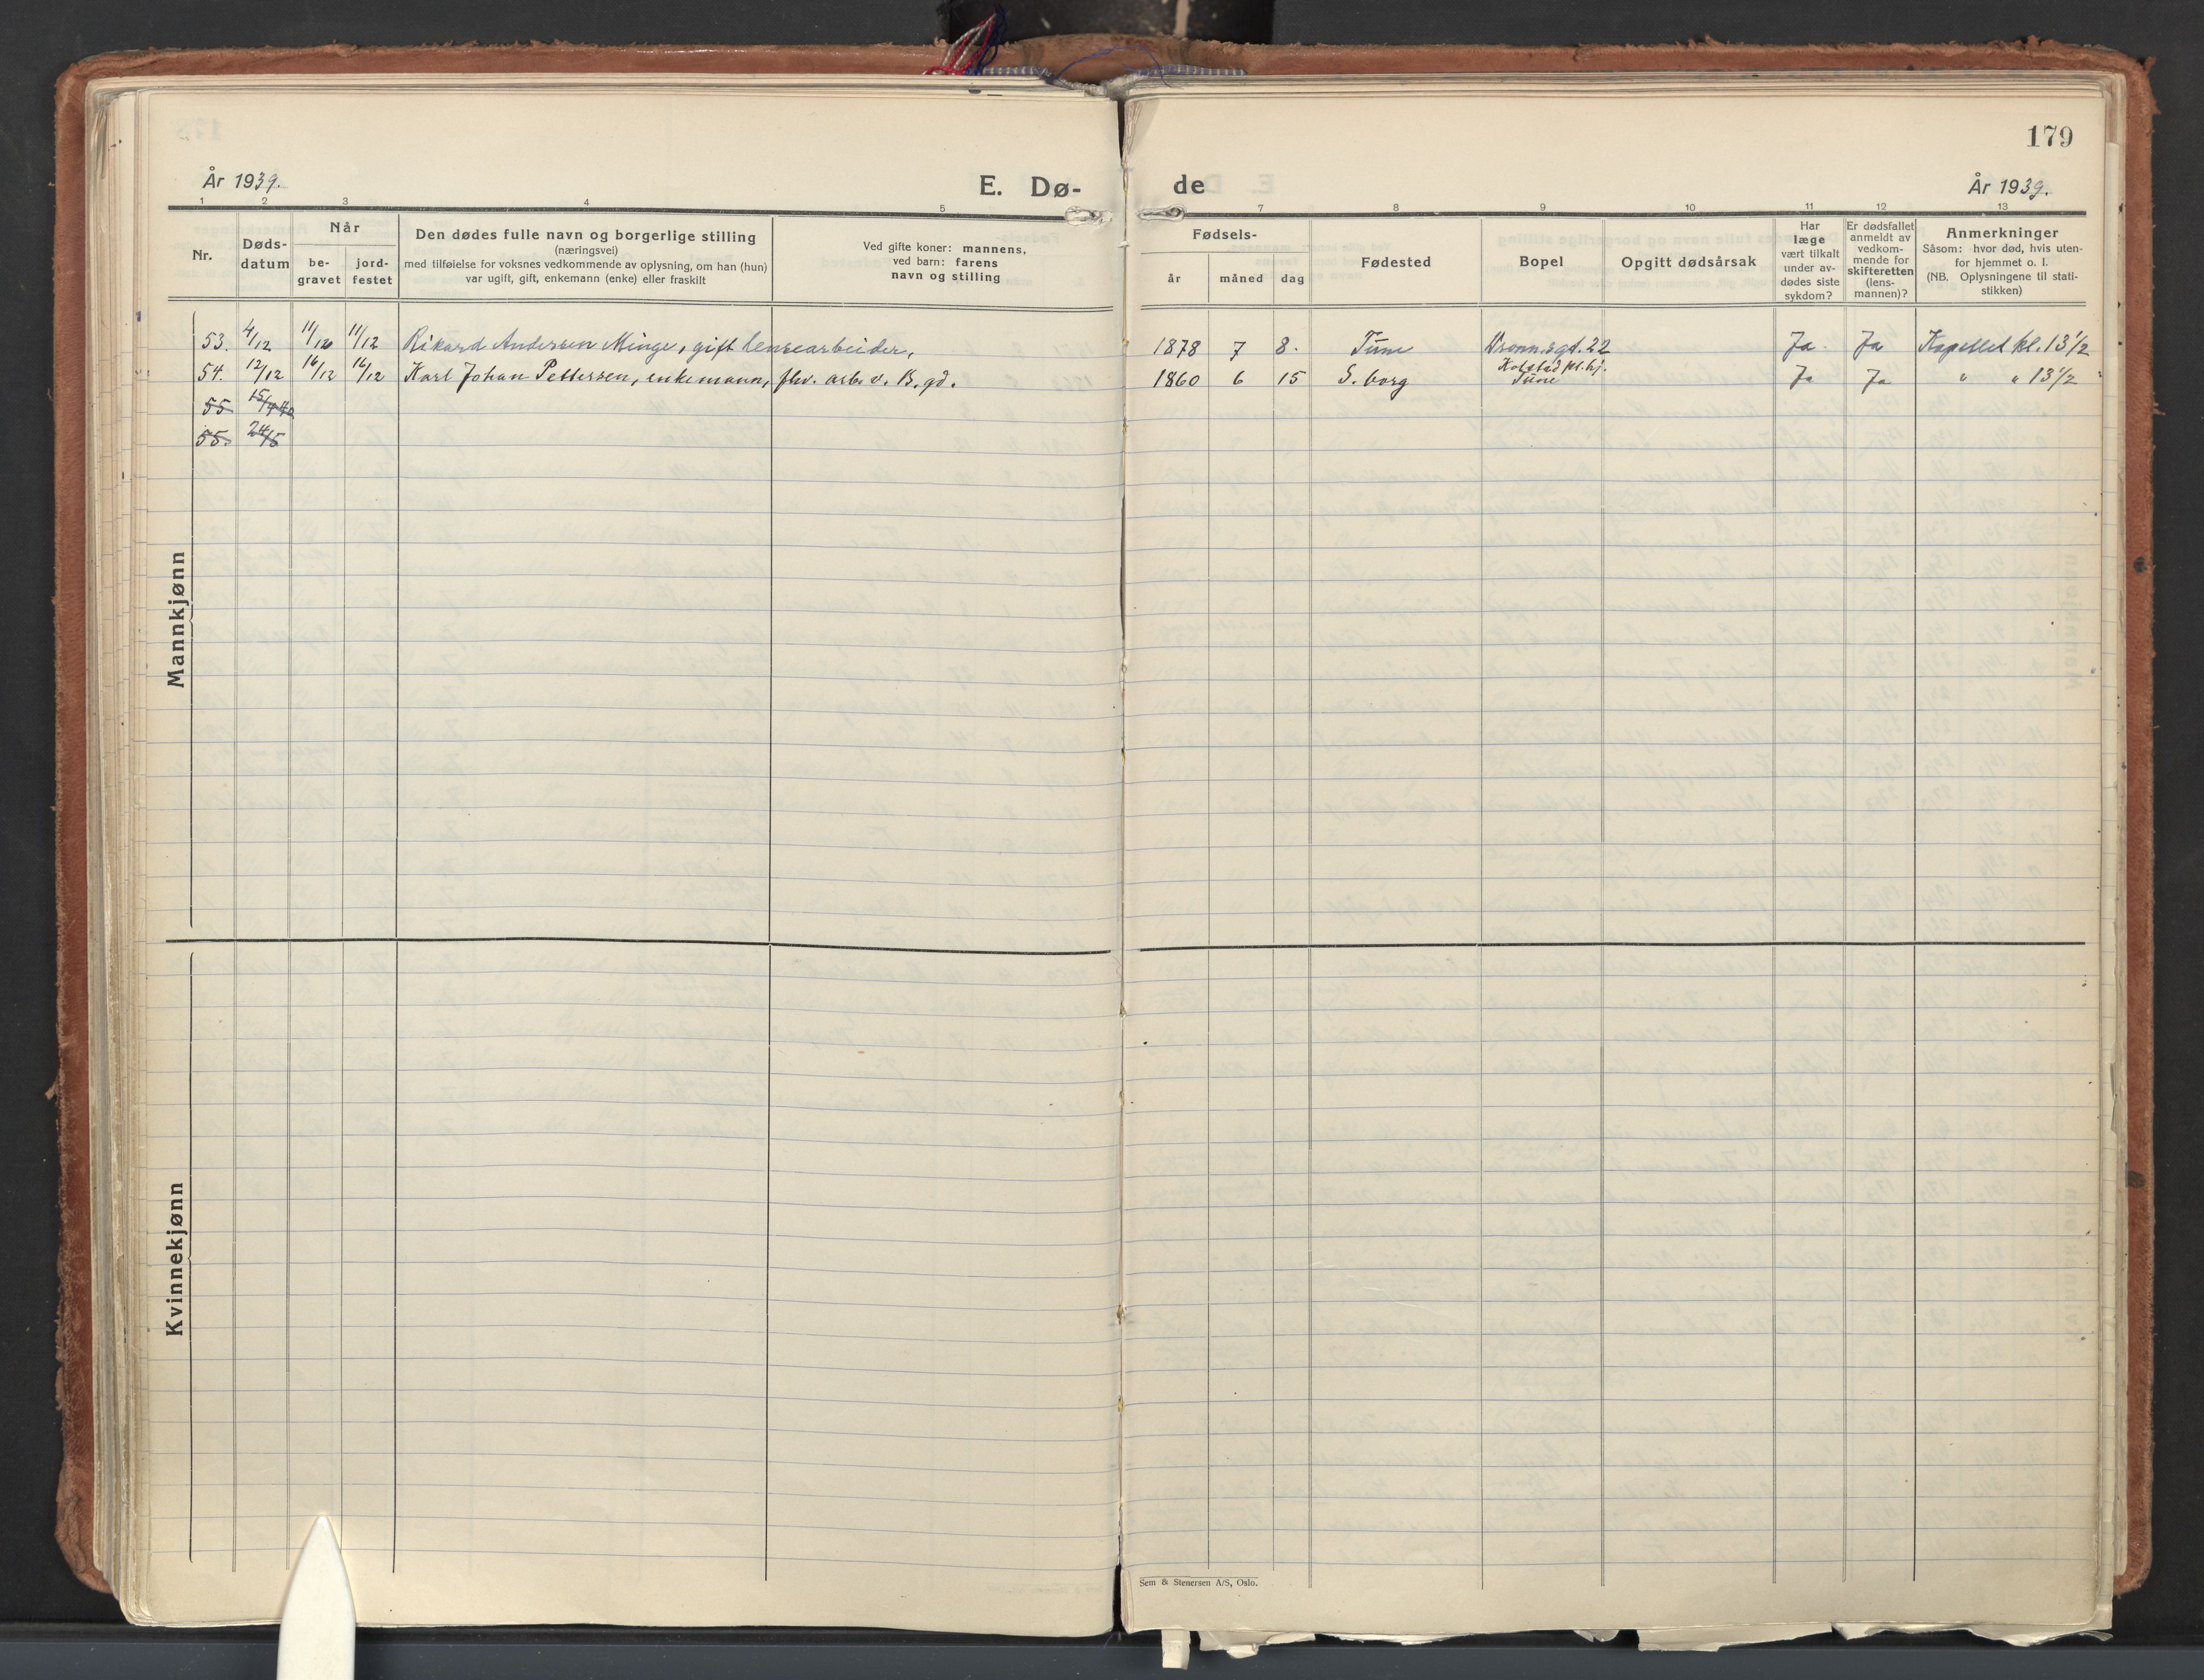 179
År 1939.
E. Dø-
de
År 1939.
1 2 3 4 5 7 8 9 10 11 12 13
Nr.
Døds-
datum
Når
be-
gravet
jord-
festet
Den dødes fulle navn og borgerlige stilling
(næringsvei)
med tilføielse for voksnes vedkommende av oplysning, om han (hun)
var ugift, gift, enkemann (enke) eller fraskilt
Ved gifte koner: mannens,
ved barn: farens
navn og stilling
Fødsels-
år måned dag
Fødested
Bopel
Opgitt dødsårsak
Har
læge
vært tilkalt
under av-
dødes siste
sykdom?
Er dødsfallet
anmeldt av
vedkom-
mende for
skifteretten
(lens-
mannen)?
Anmerkninger
Såsom: hvor død, hvis uten-
for hjemmet o. l.
(NB. Oplysningene til stati-
stikken)
Mannkjønn
53. 4/12 11/12 11/12 Rikard Andersen Minge, gift lensearbeider, 1878 7 8. Tune Dronn.sgt. 22 Ja. Ja Kapellet kl. 13 1/2
54. 12/12 16/12 16/12 Karl Johan Pettersen, enkemann, fhv. arb. v. B. gd. 1860 6 15 S. borg Kolstad pl.hj. Tune Ja Ja " " 13 1/2
55
55. 24/5
Kvinnekjønn
Sem & Stenersen A/S, Oslo.